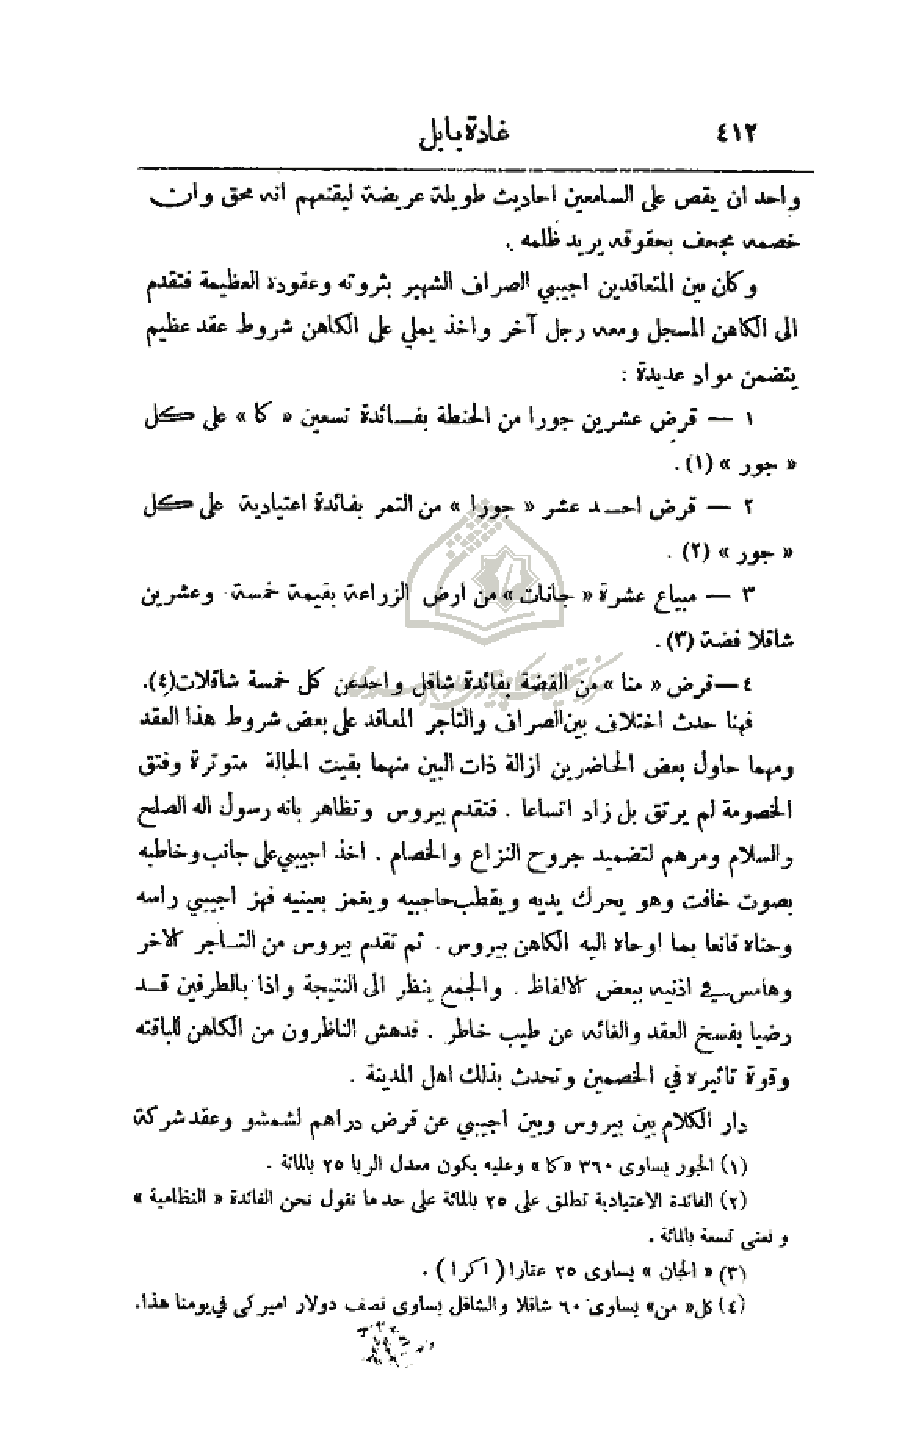 ٤١٢
غادة بابل
واحد ان يقص على السامعين احاديث طويلة عريضة ليقنعهم انه محق وان
خصمه مجحف بحقوقه يريد ظلمه .
وكان بين المتعاقدين اجيبي الصراف الشهير بثروته وعقوده العظيمة فتقدم
الى الكاهن المسجل ومعه رجل آخر واخذ يملي على الكاهن شروط عقد عظيم
يتضمن مواد عديدة :
١ — قرض عشرين جورا من الحنطة بفائدة تسعين « كا » على كل
« جور » (١) .
٢ — قرض احد عشر « جورا » من التمر بفائدة اعتيادية على كل
« جور » (٢) .
٣ — مبياع عشرة « جانات » من ارض الزراعة بقيمة خمسة وعشرين
شاقلا فضة (٣) .
٤ — قرض « منا » من الفضة بفائدة شاقل واحد عن كل خمسة شاقلات (٤).
فهنا حدث اختلاف بين الصراف والتاجر المعاقد على بعض شروط هذا العقد
ومهما حاول بعض الحاضرين ازالة ذات البين منهما بقيت الحالة متوترة وفتق
الخصومة لم يرتق بل زاد اتساعا . فتقدم بيروس وتظاهر بانه رسول اله الصلح
والسلام ومرهم لتضميد جروح النزاع والخصام . اخذ اجيبي على جانب وخاطبه
بصوت خافت وهو يحرك يديه ويقطب حاجبيه ويغمز بعينيه فهز اجيبي راسه
وحناه قانعا بما اوحاه اليه الكاهن بيروس . ثم تقدم بيروس من التاجر الاخر
وهامس في اذنيه ببعض الالفاظ . والجمع ينظر الى النتيجة واذا بالطرفين قد
رضيا بفسخ العقد والغائه عن طيب خاطر . فدهش الناظرون من الكاهن للباقته
وقوة تاثيره في الخصمين وتحدث بذلك اهل المدينة .
دار الكلام بين بيروس وبين اجيبي عن قرض دراهم لشمشو وعقد شركة
(١) الجور يساوى ٣٦٠ «كا» وعليه يكون معدل الربا ٢٥ بالمائة .
(٢) الفائدة الاعتيادية تطلق على ٢٥ بالمائة على حد ما نقول نحن الفائدة « النظامية »
و نعنى تسعة بالمائة .
(٣) « الجان » يساوى ٢٥ عقارا ( اكرا ) .
(٤) كل« من» يساوى ٦٠ شاقلا والشاقل يساوى نصف دولار اميركى في يومنا هذا.